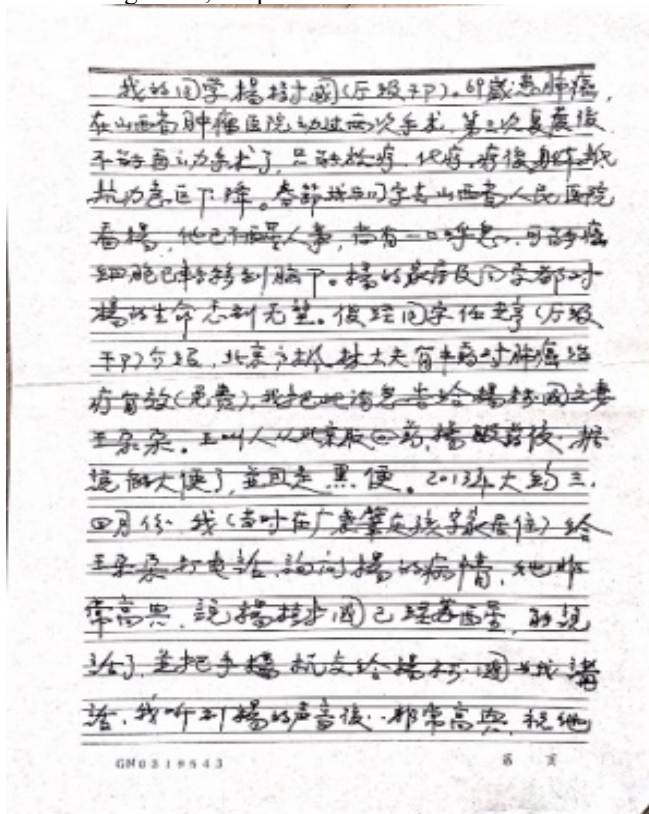 我的同学楊樹國(厅级干卩)。69歲患肺癌,
在山西省肿瘤医院动过两次手术,第三次复發後
不能再动手术了,只能放疗、化疗,疗後身体抵
抗力急區下降。春節我与同学去山西省人民医院
看楊,他已不醒人事,尚有一口呼息,可能癌
细胞已轉移到脑下。楊的家屬及同学都对
楊的生命感到无望。後经同学任 (厅级
干卩)介绍,北京 林大夫有中药对肺癌治
疗有效(免费)我把此消息告给楊树國之妻
王朵朵。王叫人从北京取回药,楊服药後,
能 大便了,並且是黑便。2013年大约三、
四月份,我(当时在广东肇庆孩子家居住)给
王朵朵打电话,詢问楊的病情,她非
常高兴,説楊樹國已经苏醒,能説
话了,並把手機 交给楊树國与我講
话,我听到楊的声音後,非常高興,祝他
GN0319543 第 页